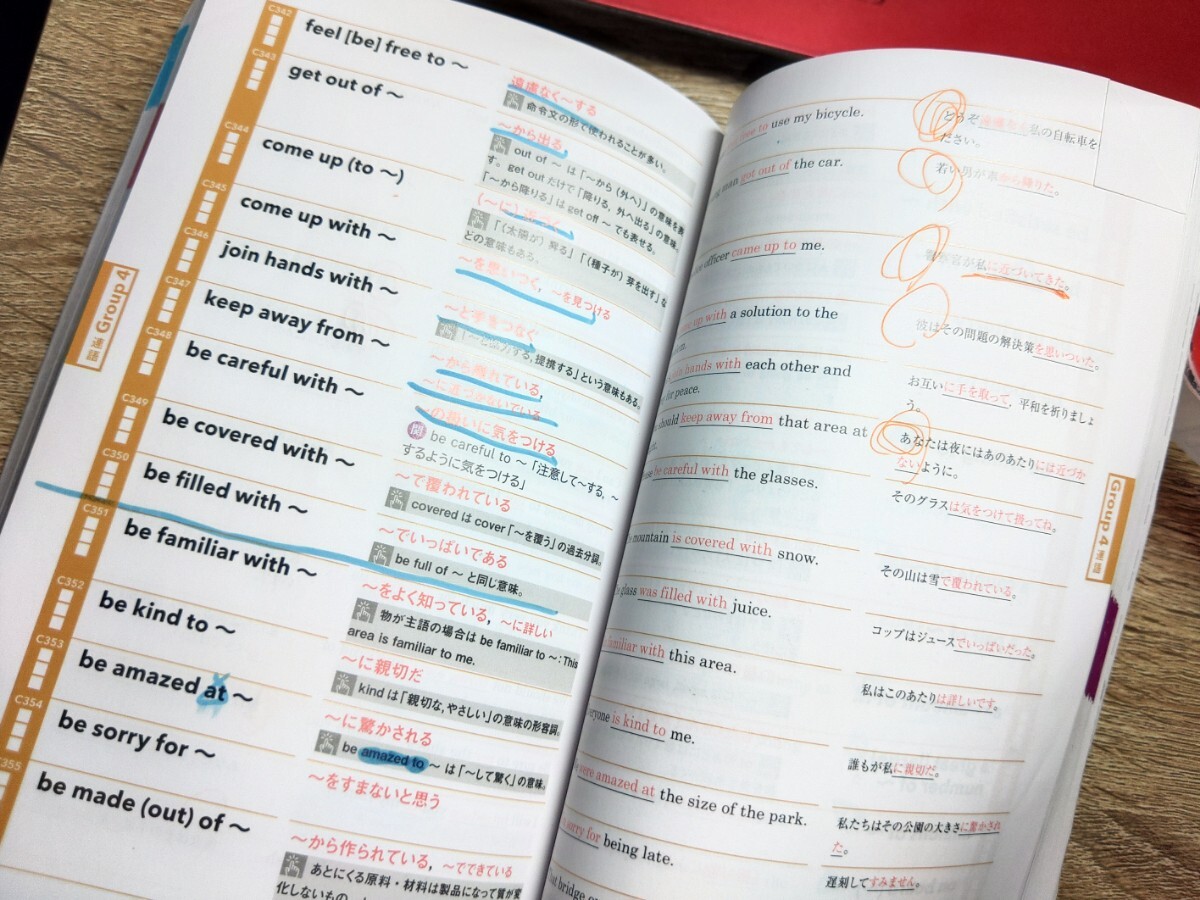 C342
feel [be] free to ～
遠慮なく～する
命令文の形で使われることが多い。
C343
get out of ～
～から出る
out of ～ は「～から（外へ）」の意味を表
す。get outだけで「降りる, 外へ出る」の意味。
「～から降りる」は get off ～ でも表せる。
C344
come up (to ～)
(～に)近づく
「（太陽が）昇る」「（種子が）芽を出す」な
どの意味もある。
C345
come up with ～
～を思いつく, ～を見つける
C346
join hands with ～
～と手をつなぐ
「～と協力する, 提携する」という意味もある。
C347
keep away from ～
～から離れている,
～に近づかないでいる
C348
be careful with ～
～の扱いに気をつける
関 be careful to ～「注意して～する, ～
するように気をつける」
C349
be covered with ～
～で覆われている
covered は cover「～を覆う」の過去分詞。
C350
be filled with ～
～でいっぱいである
be full of ～ と同じ意味。
C351
be familiar with ～
～をよく知っている, ～に詳しい
物が主語の場合は be familiar to ～: This
area is familiar to me.
C352
be kind to ～
～に親切だ
kind は「親切な, やさしい」の意味の形容詞。
C353
be amazed at ～
～に驚かされる
be amazed to ～ は「～して驚く」の意味。
C354
be sorry for ～
～をすまないと思う
355
be made (out) of ～
～から作られている, ～でできている
あとにくる原料・材料は製品になって質が変
化しないもの。
Group 4
連語
free to use my bicycle.
どうぞ遠慮なく私の自転車を
ださい。
man got out of the car.
若い男が車から降りた。
officer came up to me.
警察官が私に近づいてきた。
up with a solution to the
彼はその問題の解決策を思いついた。
join hands with each other and
for peace.
お互いに手を取って, 平和を祈りましょ
う。
should keep away from that area at
あなたは夜にはあのあたりには近づか
ないように。
be careful with the glasses.
そのグラスは気をつけて扱ってね。
mountain is covered with snow.
その山は雪で覆われている。
glass was filled with juice.
コップはジュースでいっぱいだった。
familiar with this area.
私はこのあたりは詳しいです。
everyone is kind to me.
誰もが私に親切だ。
were amazed at the size of the park.
私たちはその公園の大きさに驚かされ
た。
sorry for being late.
遅刻してすみません。
That bridge
Group 4
連語